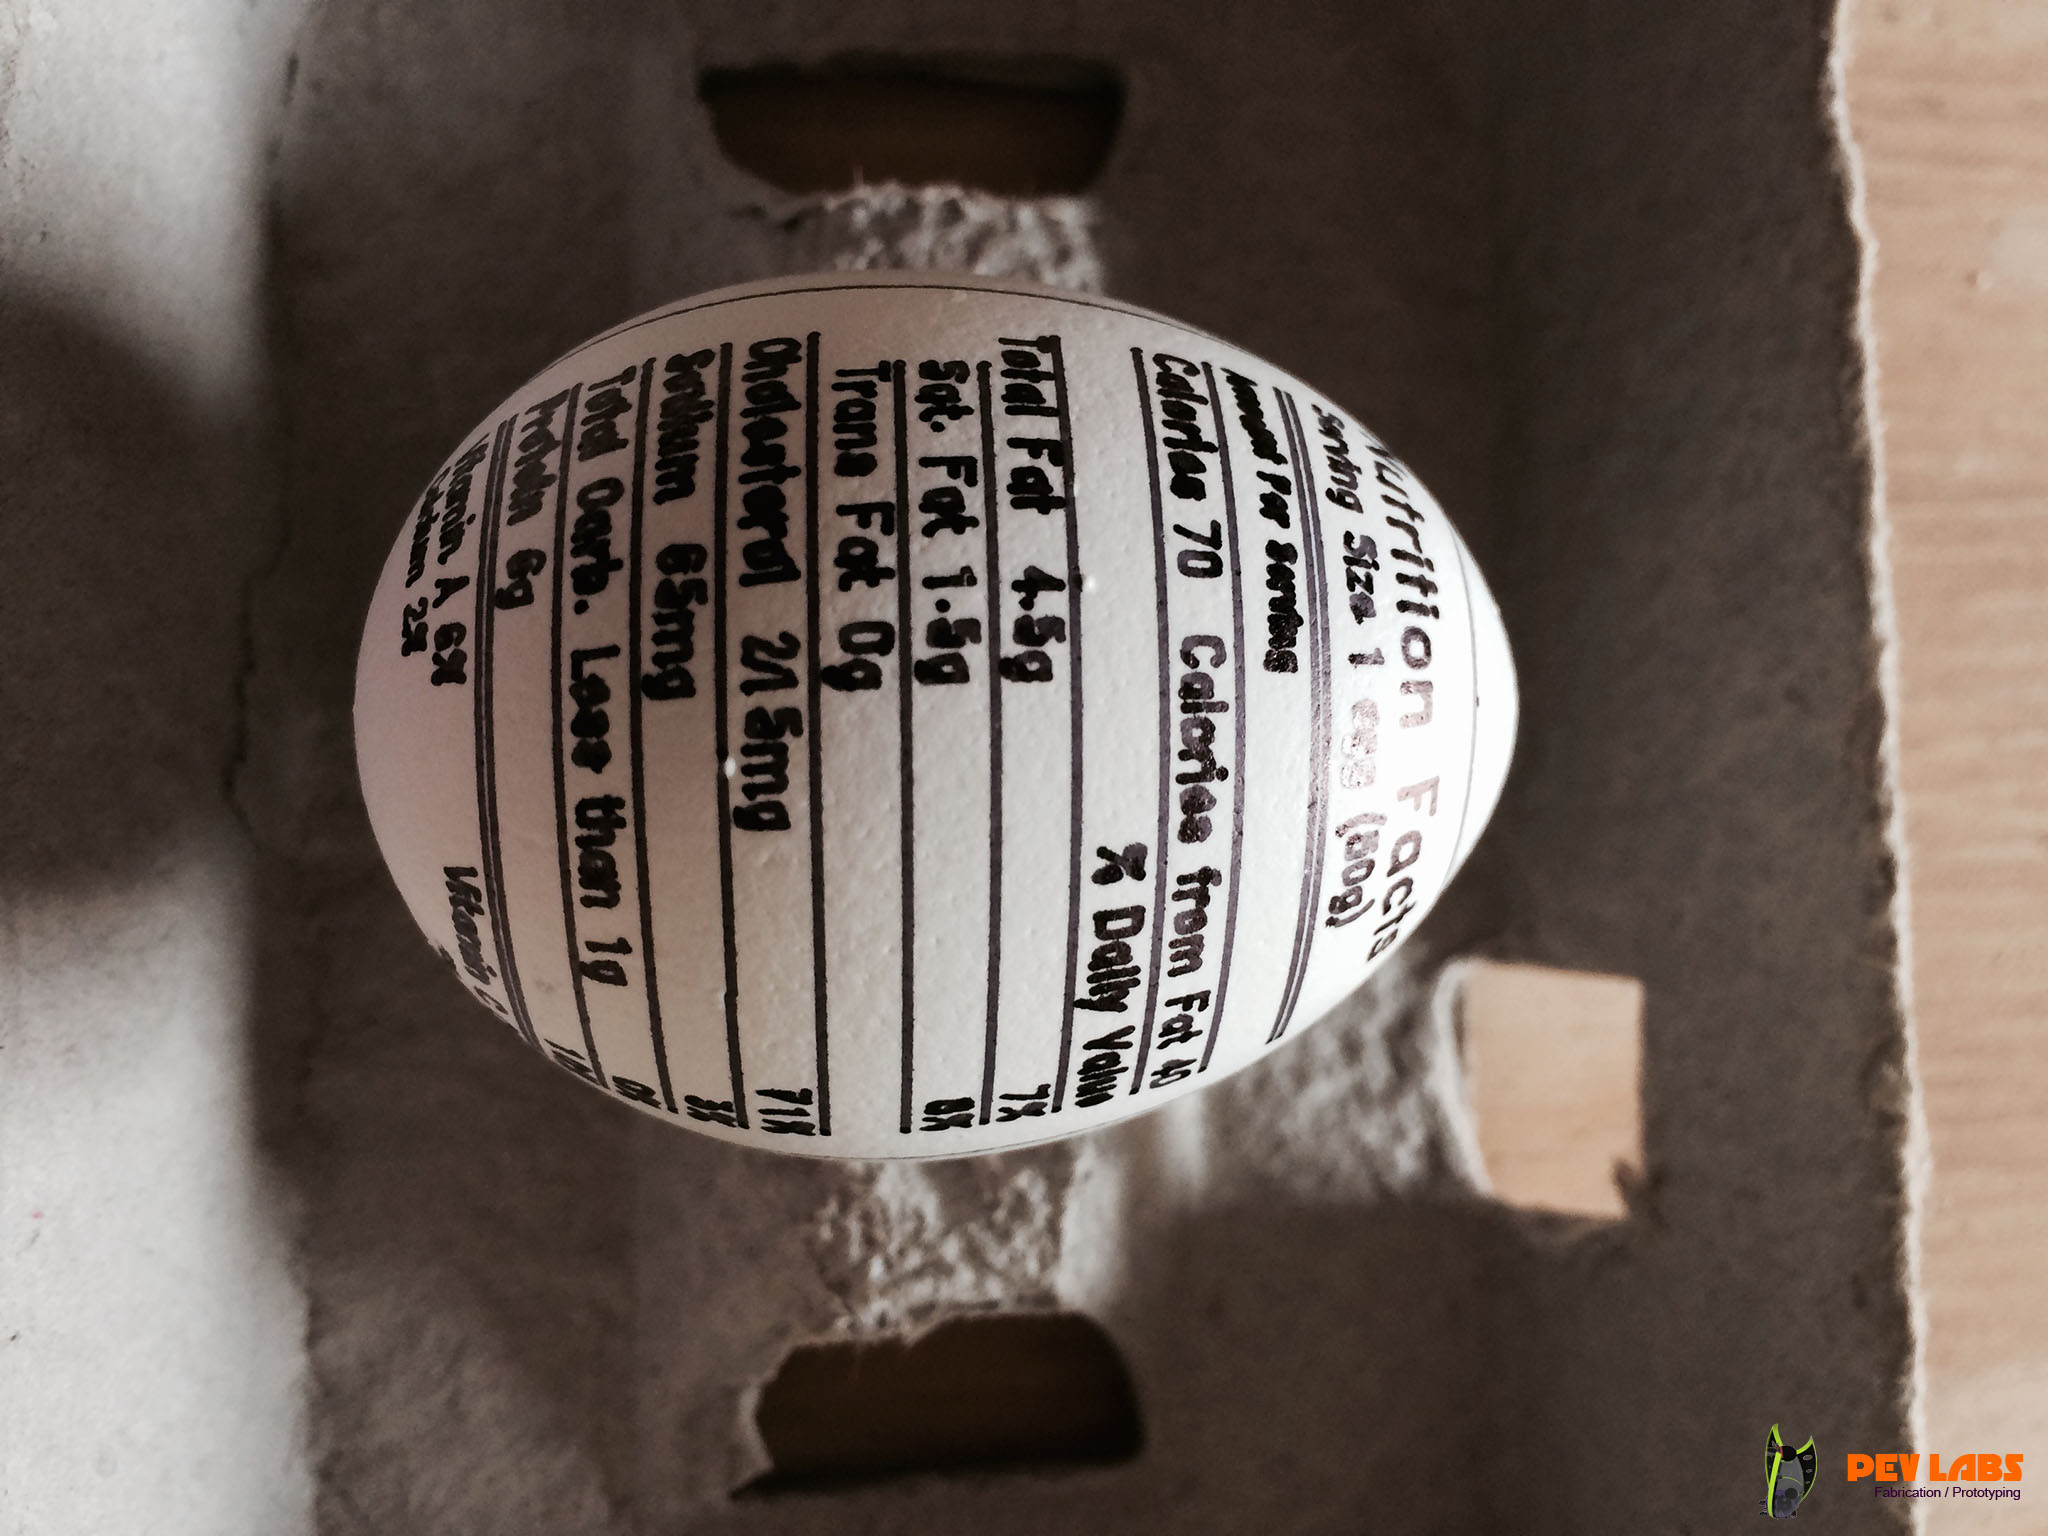 Nutrition Facts
Serving Size 1 egg (50g)
Amount Per Serving
Calories 70 Calories from Fat 40
% Daily Value
Total Fat 4.5g 7%
Sat. Fat 1.5g 8%
Trans Fat 0g
Cholesterol 215mg 71%
Sodium 65mg 3%
Total Carb. Less than 1g 0%
Protein 6g
Vitamin A 6% Vitamin C
Calcium 2%
PEV LABS
Fabrication / Prototyping